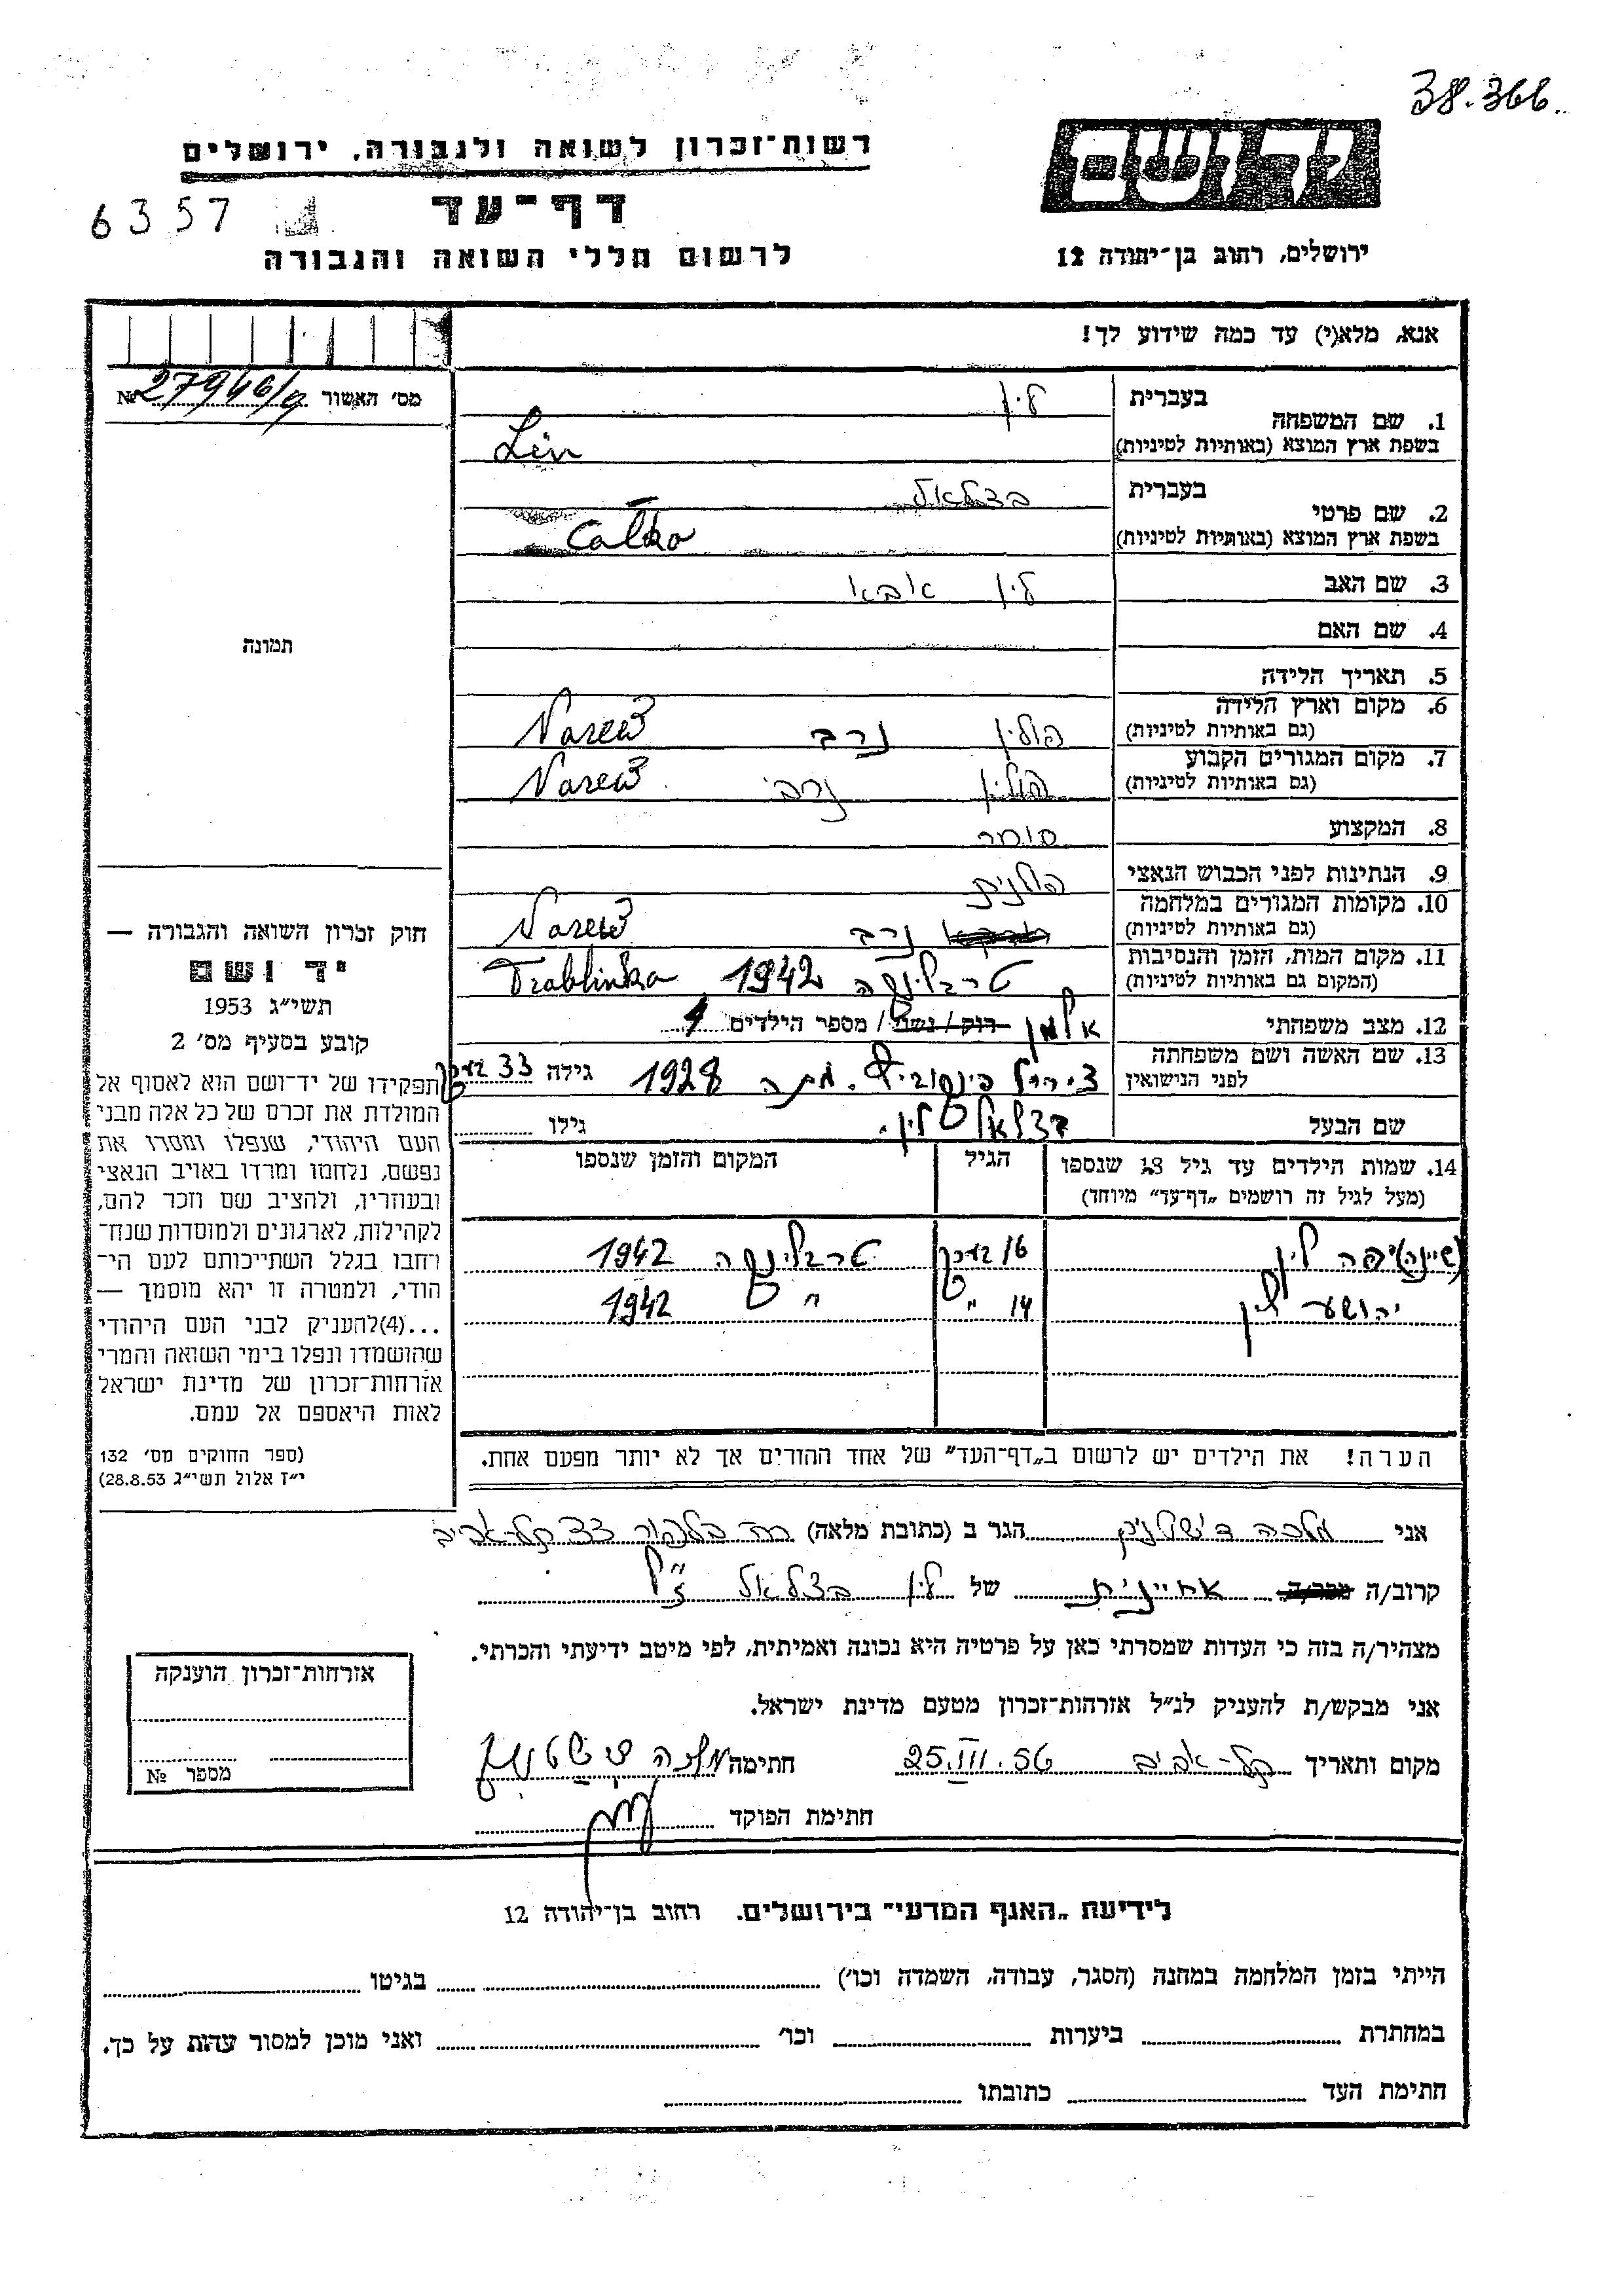 38.366
יד ושם
רשות־זכרון לשואה ולגבורה, ירושלים
6357
דף־עד
לרשום חללי השואה והגבורה
ירושלים, רחוב בן־יהודה 12
אנא, מלא(י) עד כמה שידוע לך!
מס׳ האשור 27946/9 №
1. שם המשפחה
בעברית לין
בשפת ארץ המוצא (באותיות לטיניות) Lin
2. שם פרטי
בעברית בצלאל
בשפת ארץ המוצא (באותיות לטיניות) Calko
3. שם האב לין
4. שם האם
5. תאריך הלידה
6. מקום וארץ הלידה
(גם באותיות לטיניות) פולין נרב Narew
7. מקום המגורים הקבוע
(גם באותיות לטיניות) פולין נרב Narew
8. המקצוע סוחר
9. הנתינות לפני הכבוש הנאצי פולנית
10. מקומות המגורים במלחמה
(גם באותיות לטיניות) נרב Narew
11. מקום המות, הזמן והנסיבות
(המקום גם באותיות לטיניות) טרבלינקה 1942 Trablinka
12. מצב משפחתי אלמן רוק / נשוי / מספר הילדים
13. שם האשה ושם משפחתה
לפני הנישואין מתה 1928 גילה 33
שם הבעל בצלאל לין. גילו
14. שמות הילדים עד גיל 18 שנספו
(מעל לגיל זה רושמים „דף־עד” מיוחד)
הגיל
המקום והזמן שנספו
יפה לין 16 טרבלינקה 1942
יהושע לין 14 " " 1942
הערה! את הילדים יש לרשום ב„דף־העד” של אחד ההורים אך לא יותר מפעם אחת.
תמונה
חוק זכרון השואה והגבורה —
יד ושם
תשי״ג 1953
קובע בסעיף מס׳ 2
תפקידו של יד־ושם הוא לאסוף אל
המולדת את זכרם של כל אלה מבני
העם היהודי, שנפלו ומסרו את
נפשם, נלחמו ומרדו באויב הנאצי
ובעוזריו, ולהציב שם וזכר להם,
לקהילות, לארגונים ולמוסדות שנח־
רחבו בגלל השתייכותם לעם הי־
הודי, ולמטרה זו יהא מוסמך —
...(4)להעניק לבני העם היהודי
שהושמדו ונפלו בימי השואה והמרי
אזרחות־זכרון של מדינת ישראל
לאות היאספם אל עמם.
(ספר החוקים מס׳ 132
י״ז אלול תשי״ג 28.8.53)
אני מלכה הגר ב (כתובת מלאה) בלפור 33 תל־אביב
קרוב/ה מכר/ה אחיינית של לין בצלאל ז״ל
מצהיר/ה בזה כי העדות שמסרתי כאן על פרטיה היא נכונה ואמיתית, לפי מיטב ידיעתי והכרתי.
אני מבקש/ת להעניק לנ״ל אזרחות־זכרון מטעם מדינת ישראל.
מקום ותאריך תל־אביב 25.III.56 חתימה
חתימת הפוקד
אזרחות־זכרון הוענקה
מספר №
לידיעת „האגף המדעי” בירושלים. רחוב בן־יהודה 12
הייתי בזמן המלחמה במחנה (הסגר, עבודה, השמדה וכו׳) בגיטו
במחתרת ביערות וכו׳ ואני מוכן למסור עדות על כך.
חתימת העד כתובתו